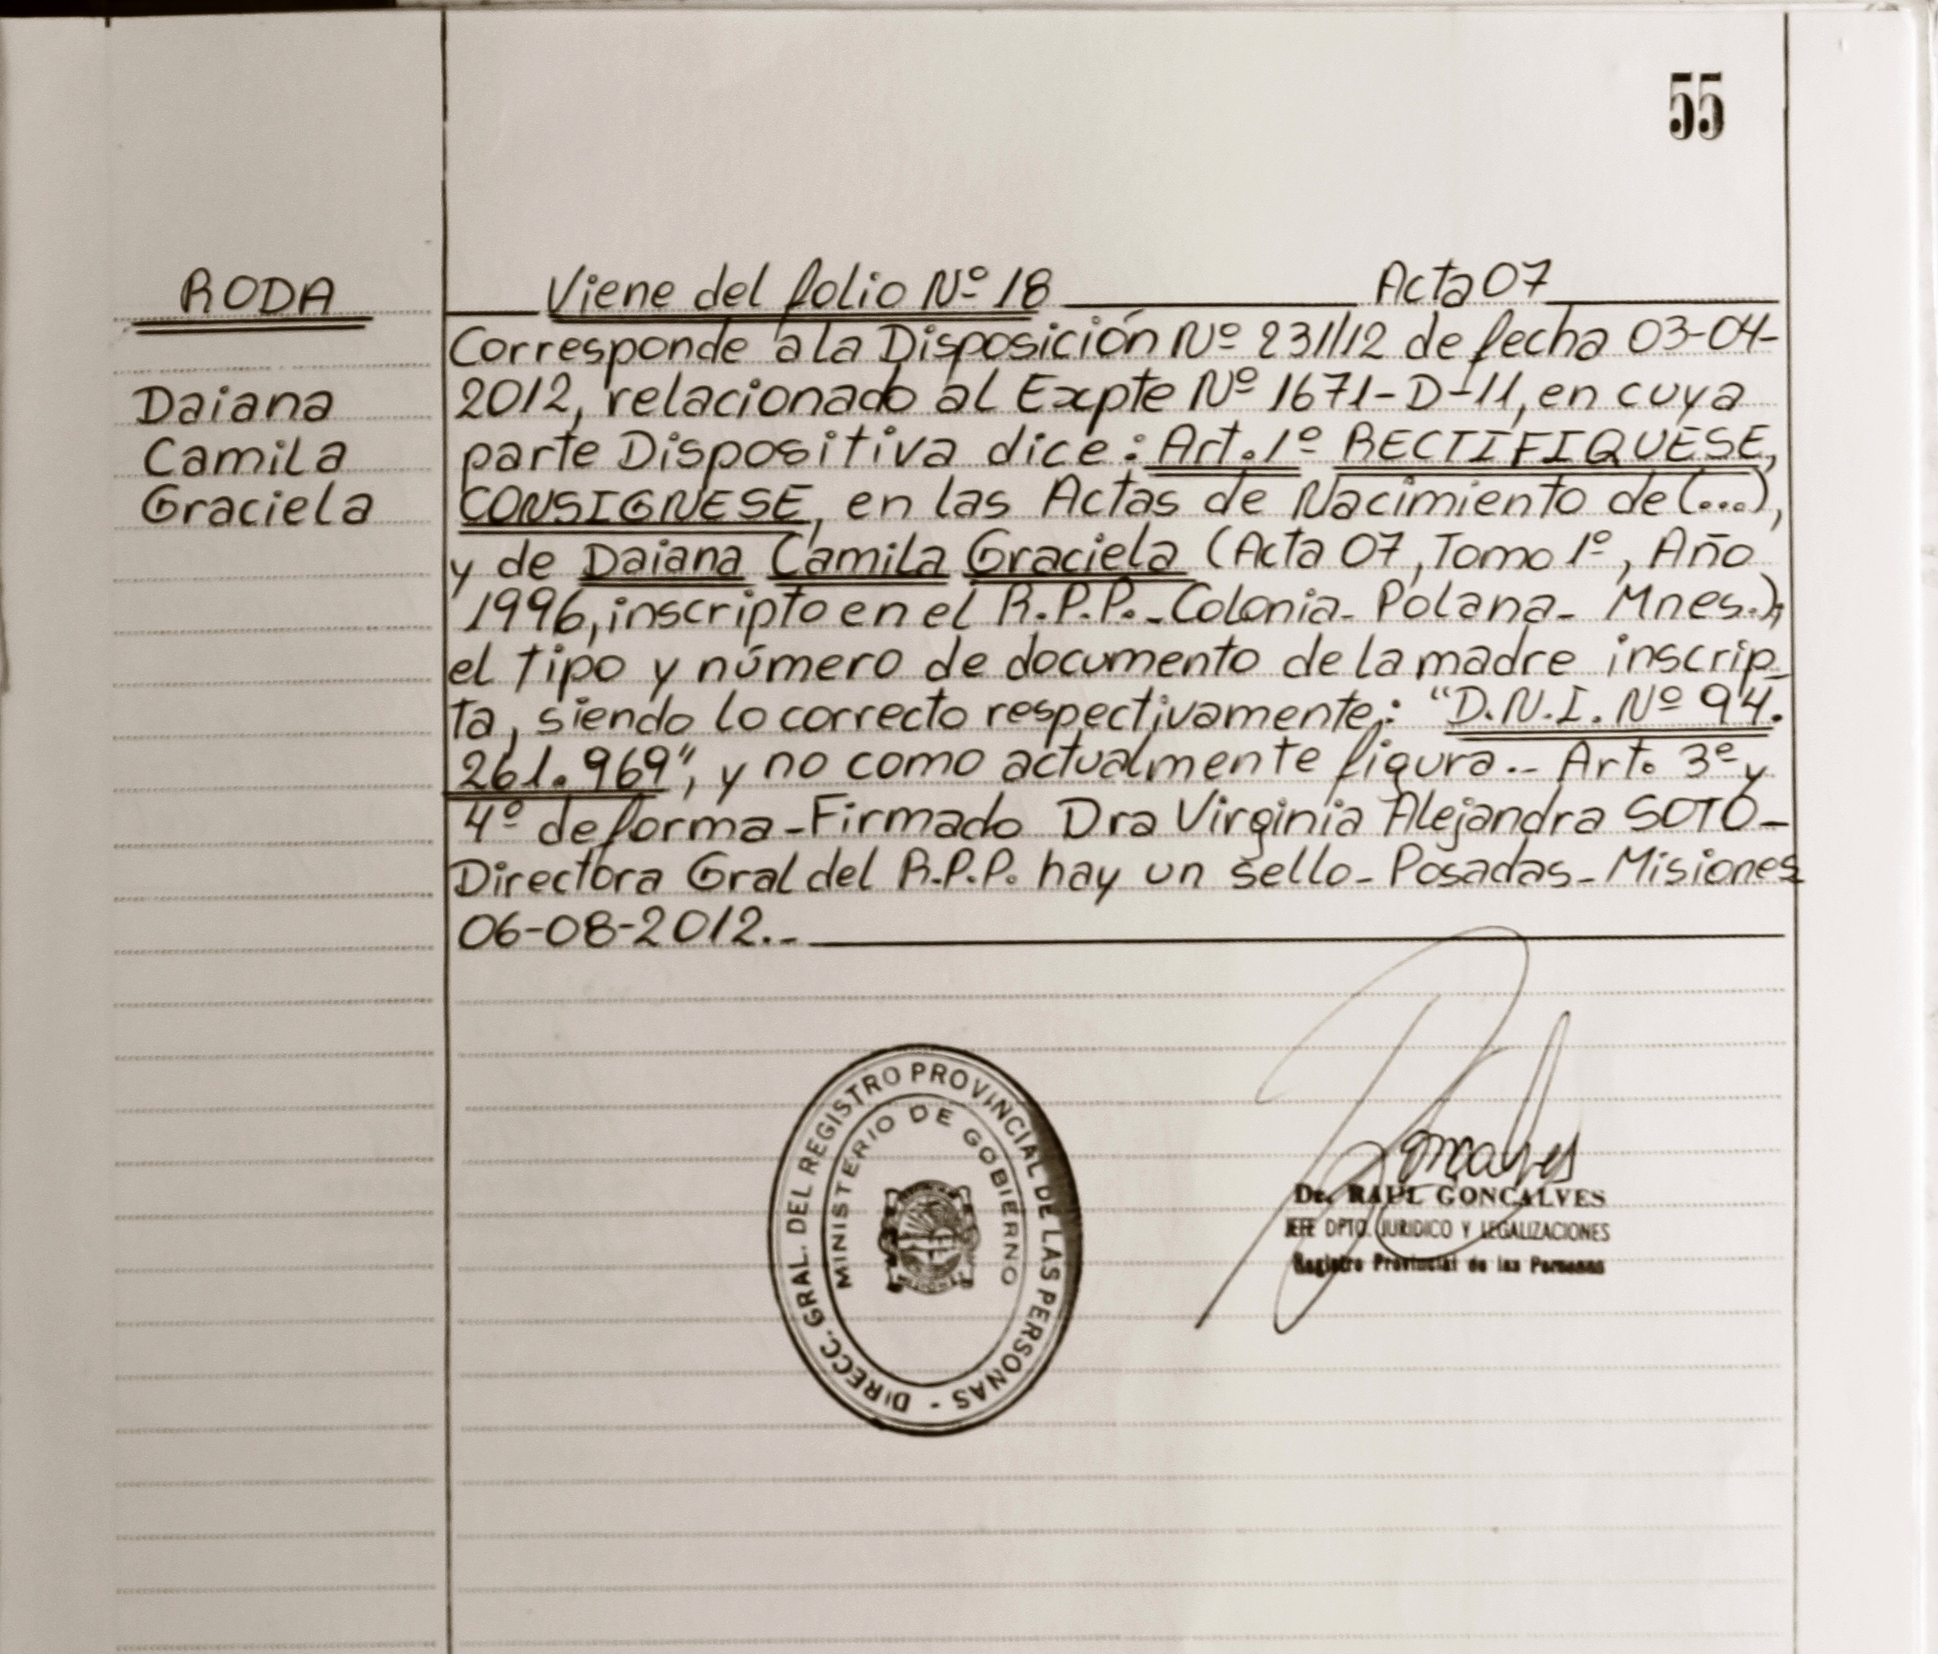 55
RODA
Daiana
Camila
Graciela
Viene del folio Nº 18 Acta 07
Corresponde a la Disposición Nº 231/12 de fecha 03-04-
2012, relacionado al Expte Nº 1671-D-11, en cuya
parte Dispositiva dice: Art. 1º RECTIFIQUESE,
CONSIGNESE, en las Actas de Nacimiento de (...),
y de Daiana Camila Graciela (Acta 07, Tomo 1º, Año
1996, inscripto en el R.P.P.-Colonia-Polana-Mnes.);
el tipo y número de documento de la madre inscrip-
ta, siendo lo correcto respectivamente: "D.N.I. Nº 94.
261.969", y no como actualmente figura.- Art. 3º y
4º de forma-Firmado Dra Virginia Alejandra SOTO-
Directora Gral del R.P.P. hay un sello-Posadas-Misiones
06-08-2012.-
DIRECC. GRAL. DEL REGISTRO PROVINCIAL DE LAS PERSONAS -
MINISTERIO DE GOBIERNO
Goncalves
Dr. RAUL GONCALVES
JEFE DPTO. JURIDICO Y LEGALIZACIONES
Registro Provincial de las Personas